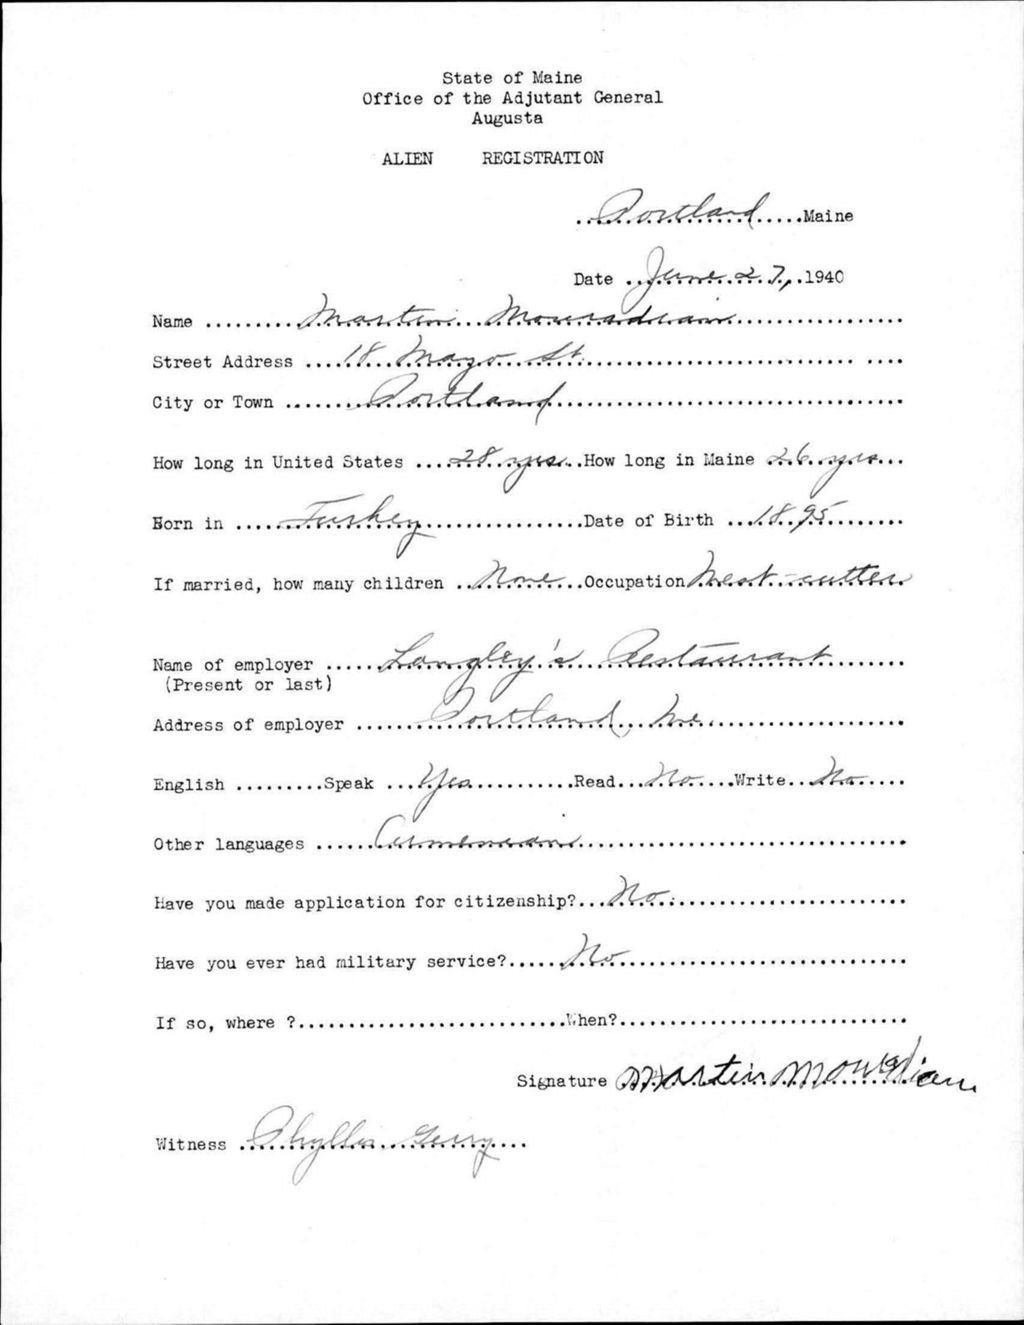 State of Maine
Office of the Adjutant General
Augusta
ALIEN REGISTRATION
Portland Maine
Date June 27, 1940
Name Martin Mouradian
Street Address 18 Mayo St.
City or Town Portland
How long in United States 28 yrs. How long in Maine 26 yrs
Born in Turkey Date of Birth 1895
If married, how many children None Occupation Meat-cutter
Name of employer Langley's Restaurant
(Present or last)
Address of employer Portland, Me.
English Speak Yes Read No Write No
Other languages Armenian
Have you made application for citizenship? No
Have you ever had military service? No
If so, where ? When?
Signature Martin Mouradian
Witness Phyllis Gerry